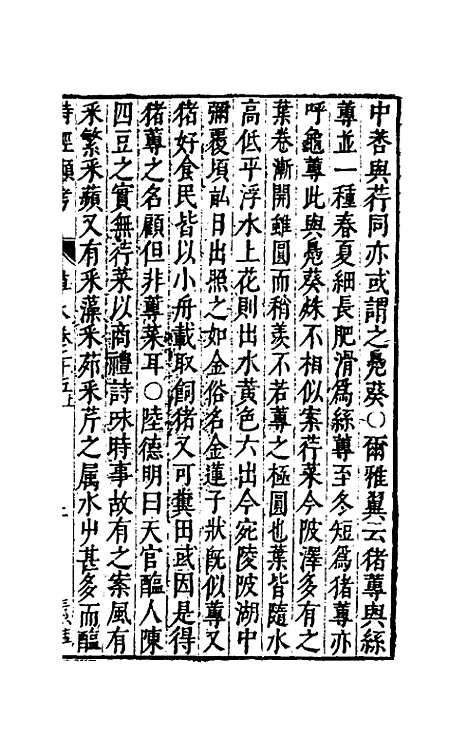 中荅與荇同亦或謂之鳧葵〇爾雅翼云猪蓴與絲
蓴並一種春夏細長肥滑爲絲蓴至冬短爲猪蓴亦
呼龜蓴此與鳧葵姝不相似案荇菜今陂澤多有之
葉卷漸開雖圓而稍羨不若蓴之極圓也葉皆隨水
高低平浮水上花則出水黄色六出今宛陵陂湖中
彌覆頃畝日出照之如金俗名金蓮子狀旣似蓴又
猪好食民皆以小舟載取飼猪又可糞田或因是得
猪蓴之名顧但非蓴菜耳〇陸德明曰天官醢人陳
四豆之實無荇菜以商禮詩珠時事故有之案風有
釆繁釆蘋又有釆藻釆茆釆芹之属水屮甚多而醢
詩經類考